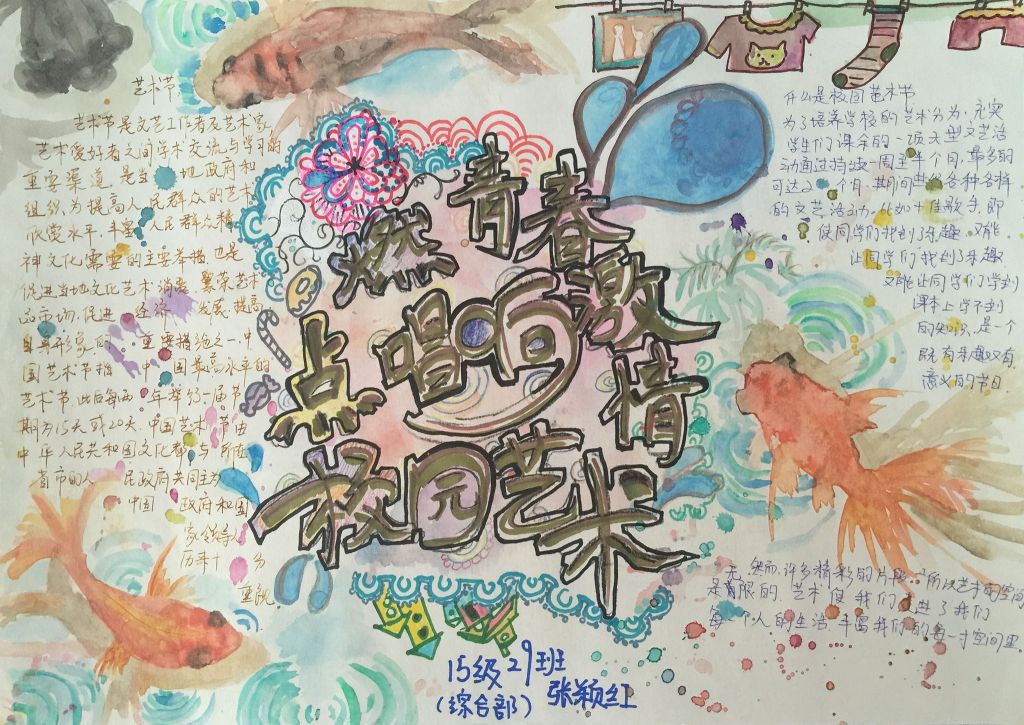 艺术节
艺术节是文艺工作者及艺术家
艺术爱好者之间学术交流与学习的
重要渠道 是当 地政府和
组织、为提高人民群众的艺术
欣赏水平,丰富人民群众精
神文化需要的主要 也是
促进当地文化艺术消费 繁荣艺术
品市场,促进 经济 发展,提高
自身形象的 重要措施之一.中
国艺术节措 中 国最高水平的
艺术节,此后每两 年举行一届 节
期为15天或20天.中国艺术 节由
中华人民共和国文化部 与 所在
省市的人 民政府共同主办
中国 政府和国
家领导人
历来十 分
重视
点燃青春激情
唱响校园艺术
什么是校园艺术节
为了培养学校的艺术分为,充实
学生们课余的一项大型文艺活
动通过持续一周至半个月,最多的
可达2 个月,其间 各种各样
的文艺活动,比如十佳歌手,即
使同学们找到了乐趣,又能
让同学们找到了乐趣
又能让同学们学到
课本上学不到
的知识,是一个
既有乐趣又有
意义的节目
无 然而,许多精彩的片段, 所以艺术的空间
是有限的,艺术使我们 进了我们
每一个人的生活,丰富我们的每一寸空间里
15级29班
(综合部) 张颖红